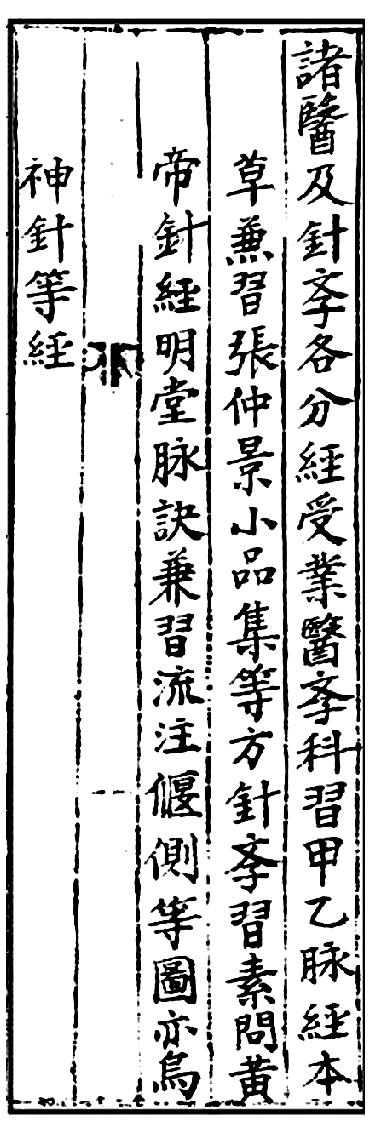 諸醫及針斈各分經受業醫斈科習甲乙脉經本
草兼習張仲景小品集等方針斈習素問黄
帝針經明堂脉訣兼習流注偃側等圖亦烏
神針等經